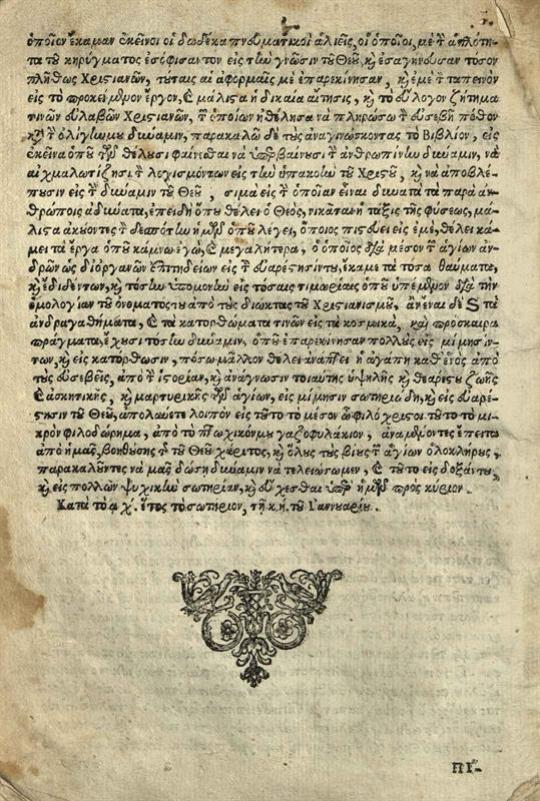 ὁποῖον ἔκαμαν ἐκεῖνοι οἱ δώδεκα πνευματικοὶ ἁλιεῖς, οἱ ὁποῖοι, μὲ τ ἁπλότη-
τα τοῦ κηρύγματος ἐσόφισαν τὸν εἰς τὴν γνῶσιν τοῦ Θεοῦ, καὶ ἐσαγήνευσαν τόσον
πλῆθως Χριστιανῶν, τύταις αἱ ἀφορμαῖς μὲ ἐπαρεκίνησαν, καὶ ἐμὲ τ ταπεινὸν
εἰς τὸ προκείμενον ἔργον, καὶ μάλιστα ἡ δικαία αἴτησις, καὶ τὸ εὔλογον ζήτημα
τινῶν εὐλαβῶν Χριστιανῶν, τ ὁποίων ἠθέλησα νὰ πληρώσω τ εὐσεβῆ πόθον
καὶ τ ὀλίγην μου δύναμιν, παρακαλῶ δὲ τοὺς ἀναγινώσκοντας τὸ Βιβλίον, εἰς
ἐκεῖνα ὁποῦ τῶν θέλουσι φαίνεσθαι νὰ ὑπερβαίνουσι τ ἀνθρωπίνην δύναμιν, νὰ
αἰχμαλωτίζησι τ λογισμόν των εἰς τὴν ὑπακοὴν τοῦ Χριστοῦ, καὶ νὰ ἀποβλέ-
πουσιν εἰς τ δύναμιν τοῦ Θεοῦ, σιμὰ εἰς τ ὁποῖαν εἶναι δυνατὰ τὰ παρὰ ἀν-
θρώποις ἀδύνατα, ἐπειδὴ ὁποῦ θέλει ὁ Θεὸς, νικᾶται ἡ τάξις τῆς φύσεως, μά-
λιστα ἀκούοντες τ δεσπότην ἡμῶν ὁποῦ λέγει, ὁποῖος πιστεύει εἰς ἐμὲ, θέλει κά-
μει τὰ ἔργα ὁποῦ κάμνω ἐγὼ, καὶ μεγαλήτερα, ὁ ὁποῖος διὰ μέσον τ ἁγίων ἀν-
δρῶν ὡς δι' ὀργάνων ἐπιτηδείων εἰς τ εὐαρέστησίν του, ἔκαμε τὰ τόσα θαύματα,
καὶ ἐδίδεν των, καὶ τόσην ὑπομονὴν εἰς τόσαις τιμωρίαις ὁποῦ ὑπέμενον διὰ τὴν
ὁμολογίαν τοῦ ὀνόματος του ἀπὸ τοὺς διώκτας τοῦ Χριστιανισμοῦ, ἂν ἔναι δὲ καὶ τὰ
ἀνδραγαθήματα, καὶ τὰ κατορθώματα τινῶν εἰς τὰ κοσμικὰ, καὶ πρόσκαιρα
πράγματα, ἔχουσι τόσην δύναμιν, ὁποῦ ἐπαρεκίνησαν πολλοὺς εἰς μίμησίν
των, καὶ εἰς κατόρθωσιν, πόσῳ μᾶλλον θέλει ἀνάπτει ἡ ἀγάπη καθ' ἑνὸς ἀπὸ
τοὺς εὐσεβεῖς, ἀπὸ τ ἱστορίαν, καὶ ἀνάγνωσιν τοιαύτης ὑψηλῆς καὶ θεαρέστου ζωῆς
καὶ ἀσκητικῆς, καὶ μαρτυρικῆς τῶν ἁγίων, εἰς μίμησιν σωτηριώδη, καὶ εἰς εὐαρέ-
στησιν τοῦ Θεοῦ, ἀπολαύετε λοιπὸν εἰς τοῦτο τὸ μέσον ὦ φιλόχριστοι τοῦτο τὸ μι-
κρὸν φιλοδώρημα, ἀπὸ τὸ πτωχικόν μου γαζοφυλάκιον, ἀναμένοντες ἔπειτα
ἀπὸ ἡμᾶς, βοηθούσης τ τοῦ Θεοῦ χάριτος, καὶ ὅλους τοὺς βίους τ ἁγίων ὁλοκλήρους,
παρακαλοῦντες νὰ μᾶς δώσῃ δύναμιν νὰ τελειώσωμεν, καὶ τοῦτο εἰς δόξάν του,
καὶ εἰς πολλῶν ψυχικὴν σωτηρίαν, καὶ εὔχεσθαι ὑπὲρ ἡμῶν πρὸς κύριον.
Κατὰ τὸ αφχ. ἔτος τὸ σωτήριον, τῇ κή. τοῦ Ἰαννουαρίου.
ΠΙ-